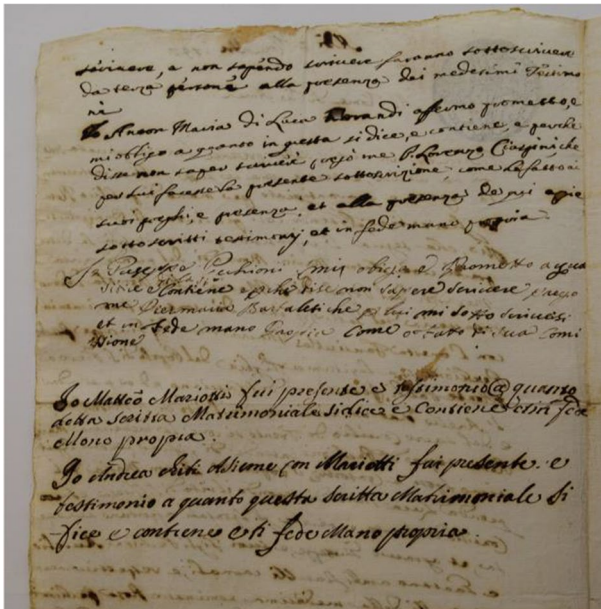 scrivere, e non sapendo scrivere faranno sottoscrivere
da terza persone alla presenza dei medesimi Testimo
ni
Io Anton Maria di Luca Morandi affermo prometto, e
mi obligo a quanto in questa si dice, e contiene, e perche
disse non saper scrivere, pregò me P. Lorenzo Ciaspini, che
per lui facesse la presente sottoscrizione, come ho fatto a
suoi preghi, e presenza, et alla presenza de
sottoscritti testimonj, et in fede mano propria
Io Giuseppe mi obligo e Prometto a qua
dice e Contiene e perche disse non sapere scrivere prego
me Piermaria che p lui mi sotto scrivessi
et in Fede mano Propria Come o fatto di sua Comi
sione
Io Matteo Mariotti fui presente e testimonio a quanto
detta scritta Matrimoniale si dice e Contiene et in fede
Mono propria.
Io Andrea Asieme con Mariotti fui presente. e
testimonio a quanto questa scritta Matrimoniale si
dice e contiene e ti fede Mano propria